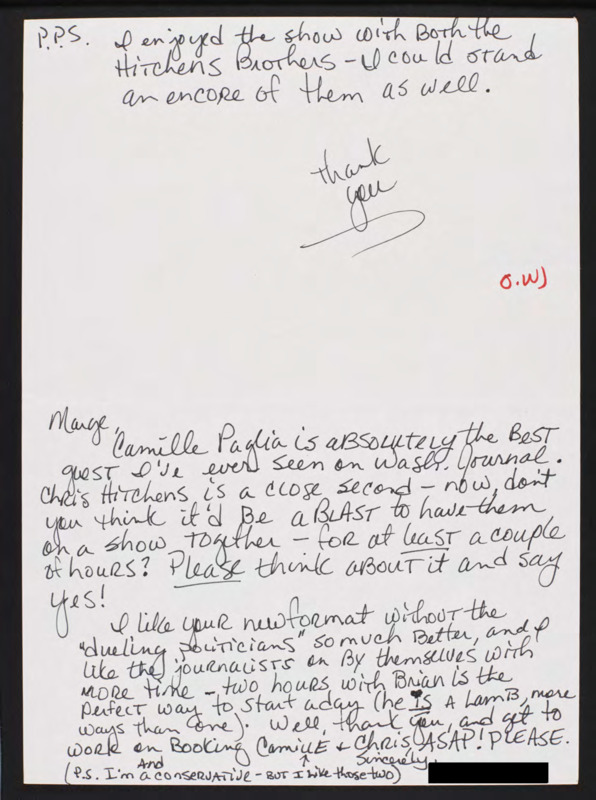 P.P.S. I enjoyed the show with Both the
Hitchens Brothers – I could stand
an encore of them as well.
thank
you
O.W)
Marge,
Camille Paglia is absolutely the Best
guest I've ever seen on Wash. Journal.
Chris Hitchens is a close second – now, don't
you think it'd Be a BLAST to have them
on a show together – for at least a couple
of hours? Please think about it and say
yes!
I like your new format without the
"dueling politicians" so much Better, and I
like the journalists on By themselves with
more time – two hours with Brian is the
perfect way to start a day (he is A Lamb, more
ways than one). Well, thank you, and get to
work on Booking Camille & Chris, ASAP! PLEASE.
Sincerely,
(P.S. I'm a conservative – BUT And I like those two)